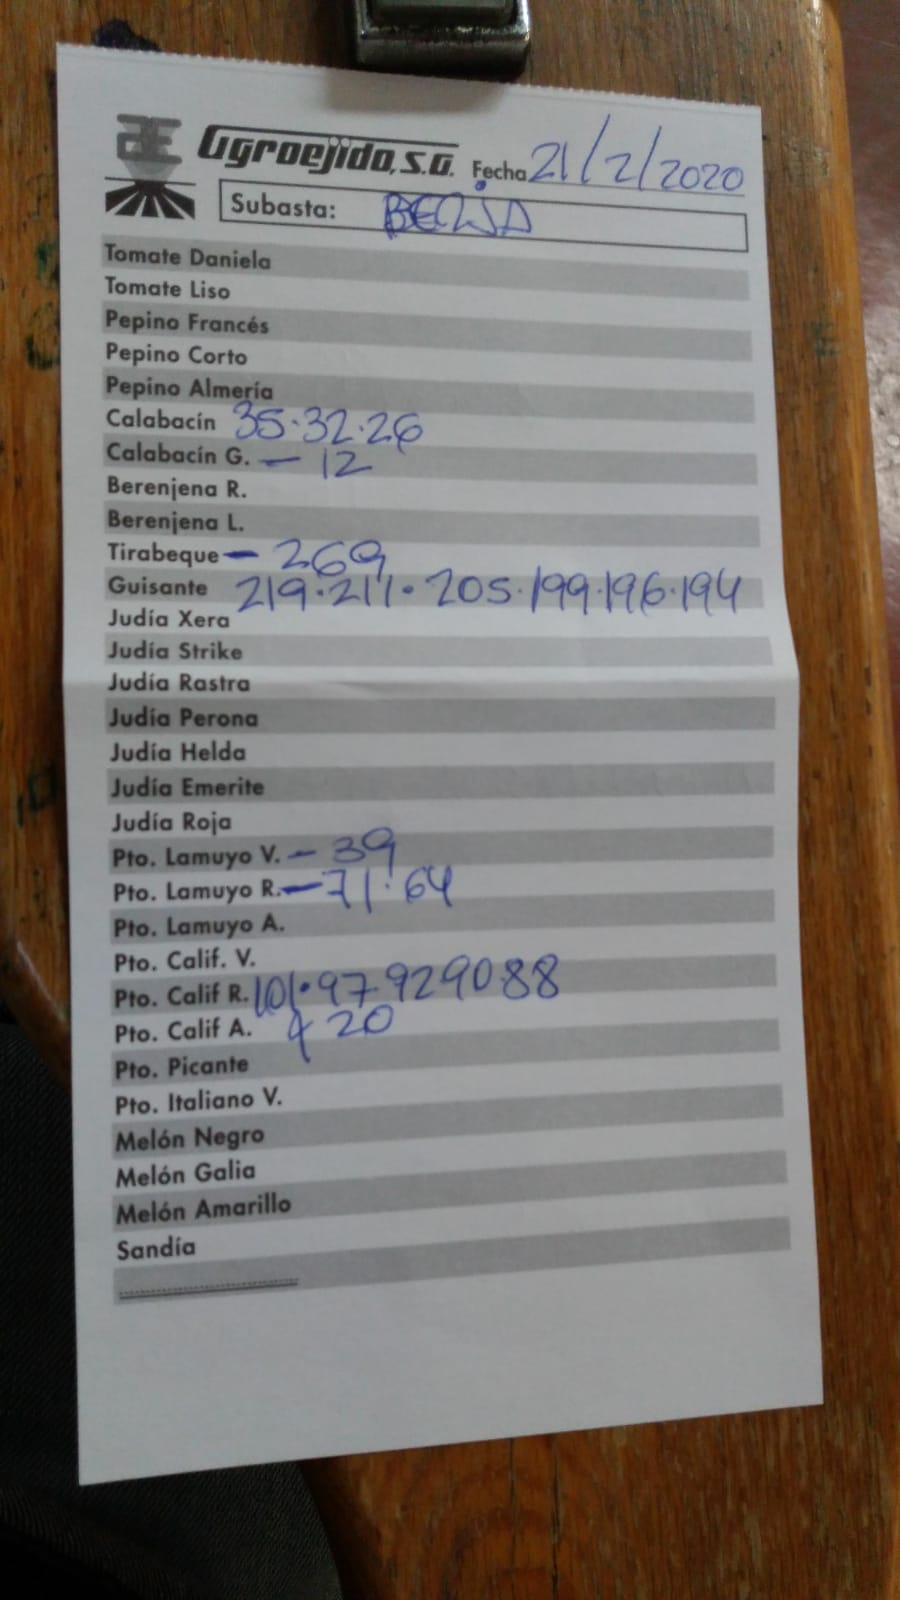 Agroejido, S.A. Fecha 21/2/2020
Subasta: BERJA
Tomate Daniela
Tomate Liso
Pepino Francés
Pepino Corto
Pepino Almería
Calabacín 35.32.26
Calabacín G. - 12
Berenjena R.
Berenjena L.
Tirabeque - 269
Guisante 219.211.205.199.196.194
Judía Xera
Judía Strike
Judía Rastra
Judía Perona
Judía Helda
Judía Emerite
Judía Roja
Pto. Lamuyo V. - 39
Pto. Lamuyo R. - 71.64
Pto. Lamuyo A.
Pto. Calif. V.
Pto. Calif R. 101.97.929088
Pto. Calif A. 20
Pto. Picante
Pto. Italiano V.
Melón Negro
Melón Galia
Melón Amarillo
Sandía